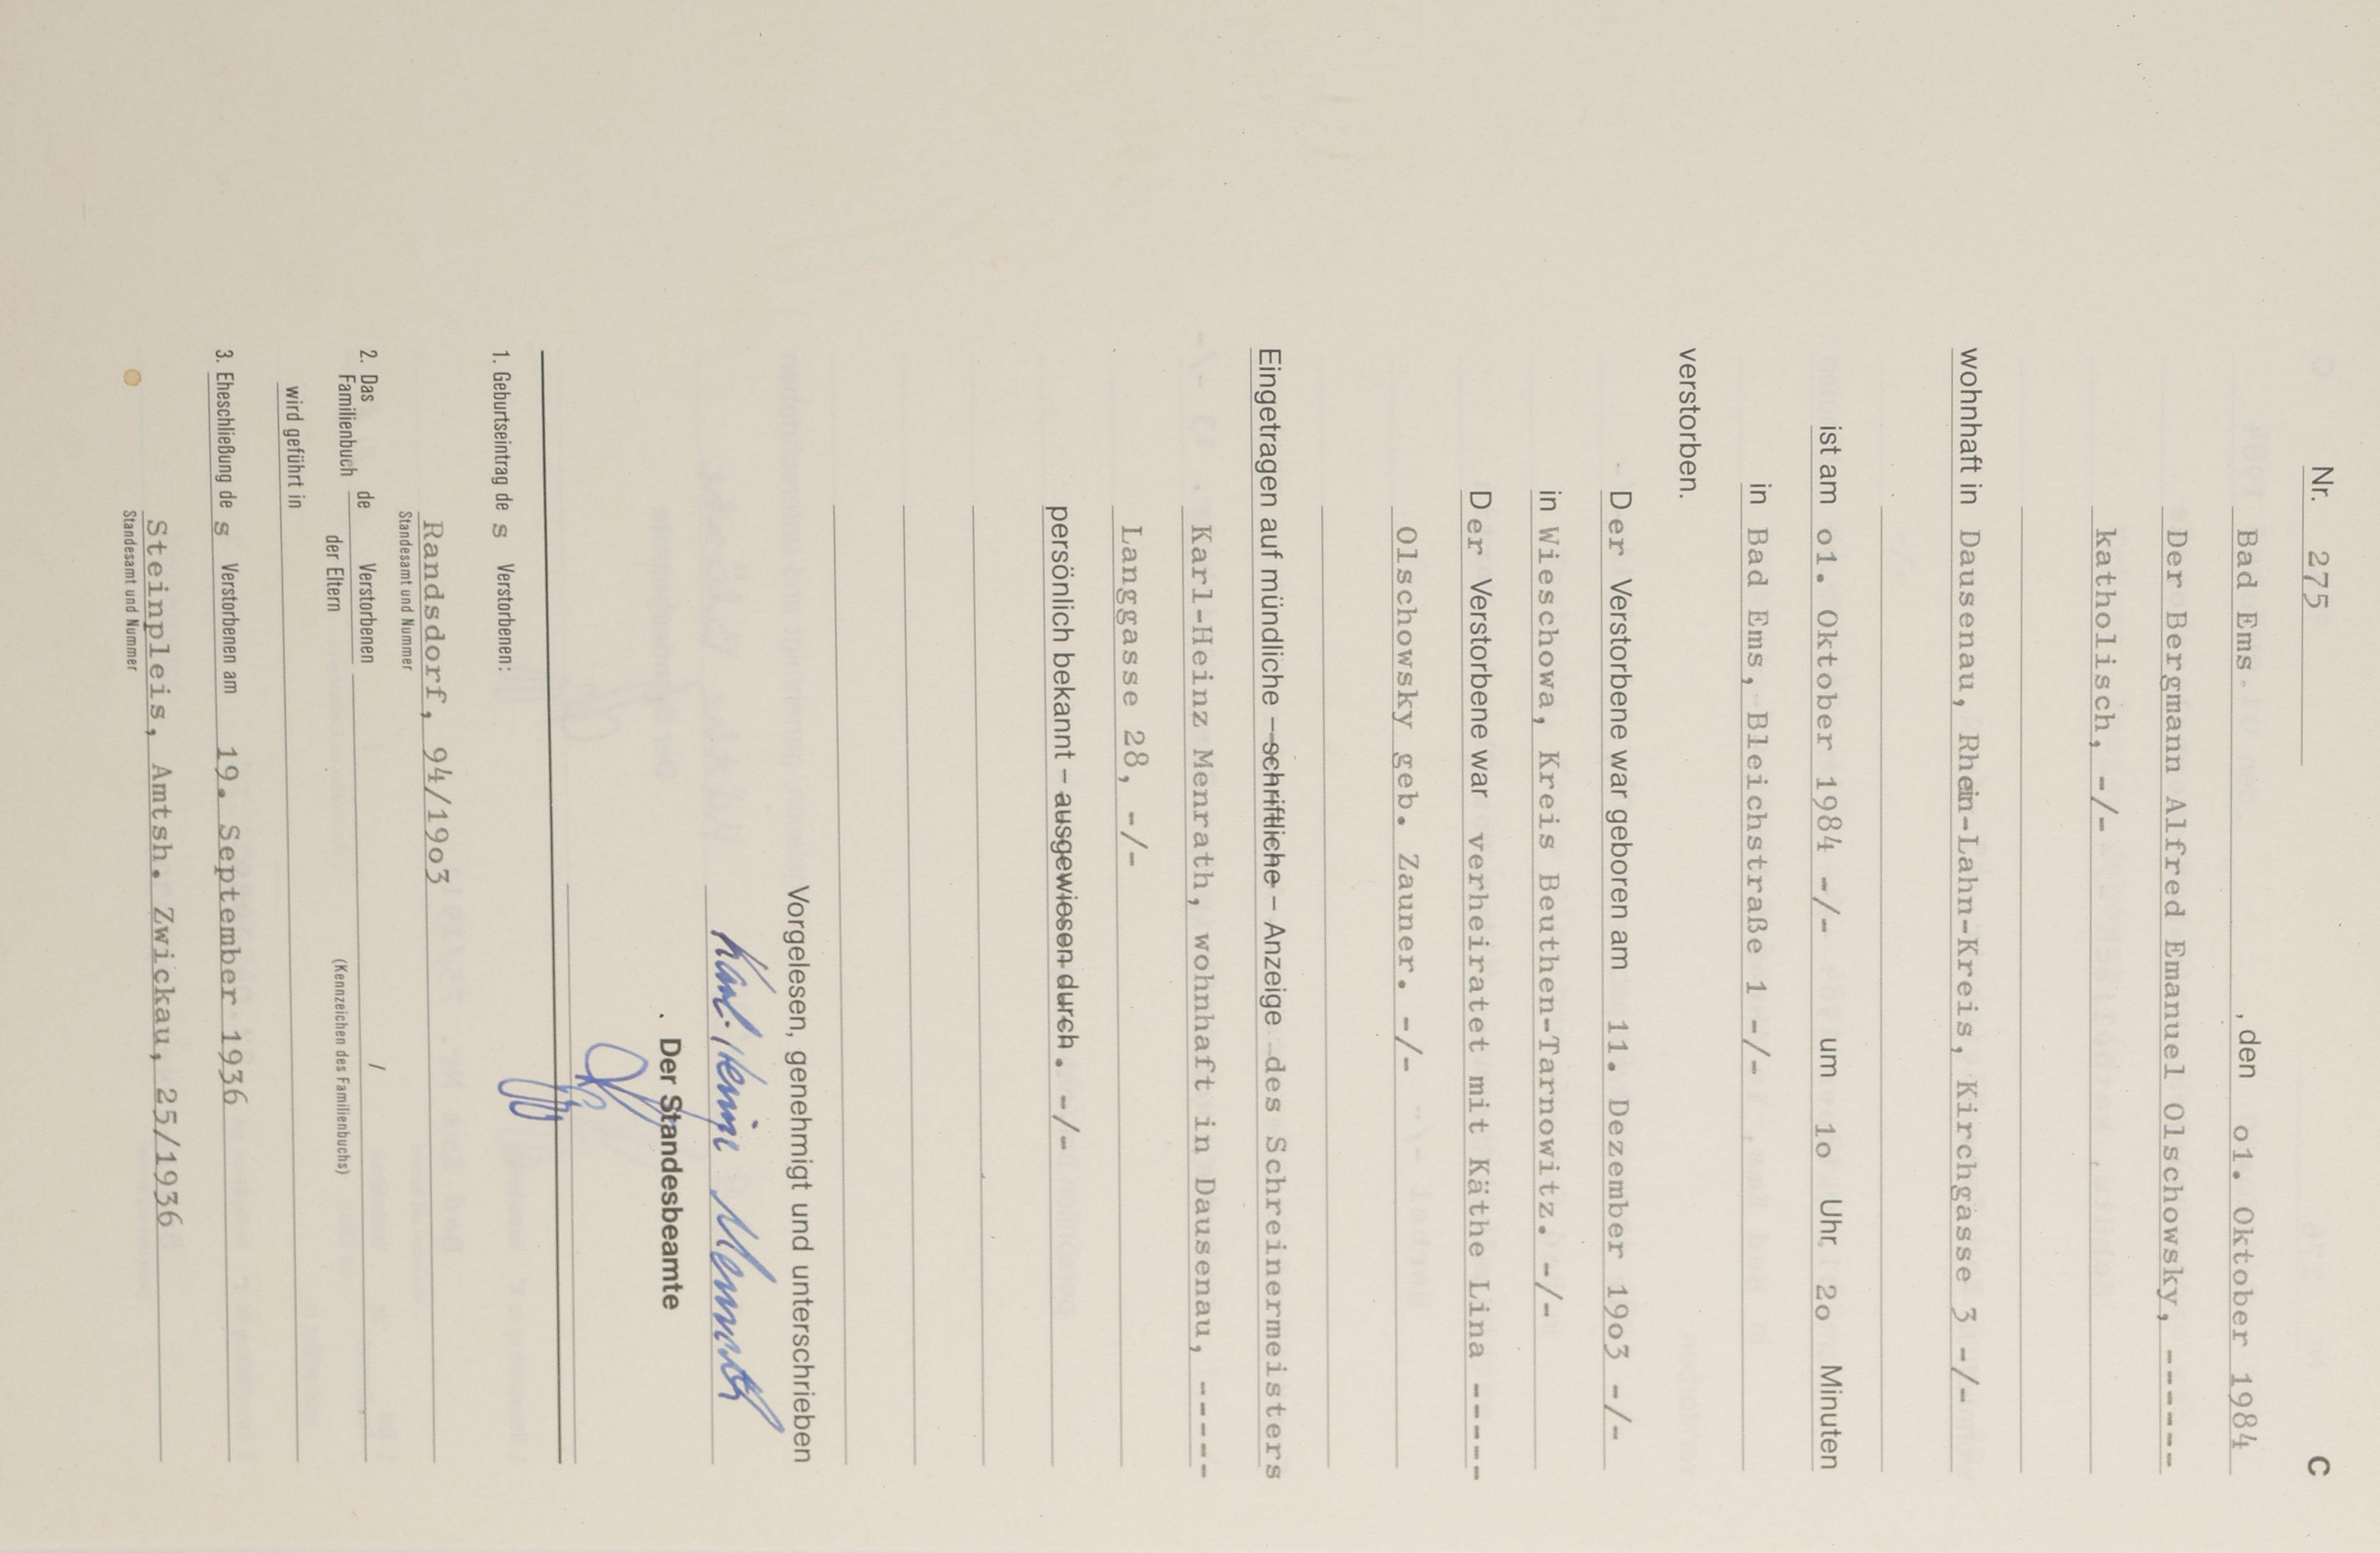 Nr. 275 C
Bad Ems , den o1. Oktober 1984
Der Bergmann Alfred Emanuel Olschowsky, ------
katholisch, -/-
wohnhaft in Dausenau, Rhein-Lahn-Kreis, Kirchgasse 3 -/-
ist am o1. Oktober 1984 -/- um 1o Uhr 2o Minuten
in Bad Ems, Bleichstraße 1 -/-
verstorben.
Der Verstorbene war geboren am 11. Dezember 19o3 -/-
in Wieschowa, Kreis Beuthen-Tarnowitz. -/-
Der Verstorbene war verheiratet mit Käthe Lina -----
Olschowsky geb. Zauner. -/-
Eingetragen auf mündliche – schriftliche – Anzeige des Schreinermeisters
Karl-Heinz Menrath, wohnhaft in Dausenau, -----
Langgasse 28, -/-
persönlich bekannt – ausgewiesen durch . -/-
Vorgelesen, genehmigt und unterschrieben
Karl-Heinz Menrath
Der Standesbeamte
1. Geburtseintrag de s Verstorbenen:
Randsdorf, 94/19o3
Standesamt und Nummer
2. Das Familienbuch de Verstorbenen /
der Eltern (Kennzeichen des Familienbuchs)
wird geführt in
3. Eheschließung de s Verstorbenen am 19. September 1936
Steinpleis, Amtsh. Zwickau, 25/1936
Standesamt und Nummer